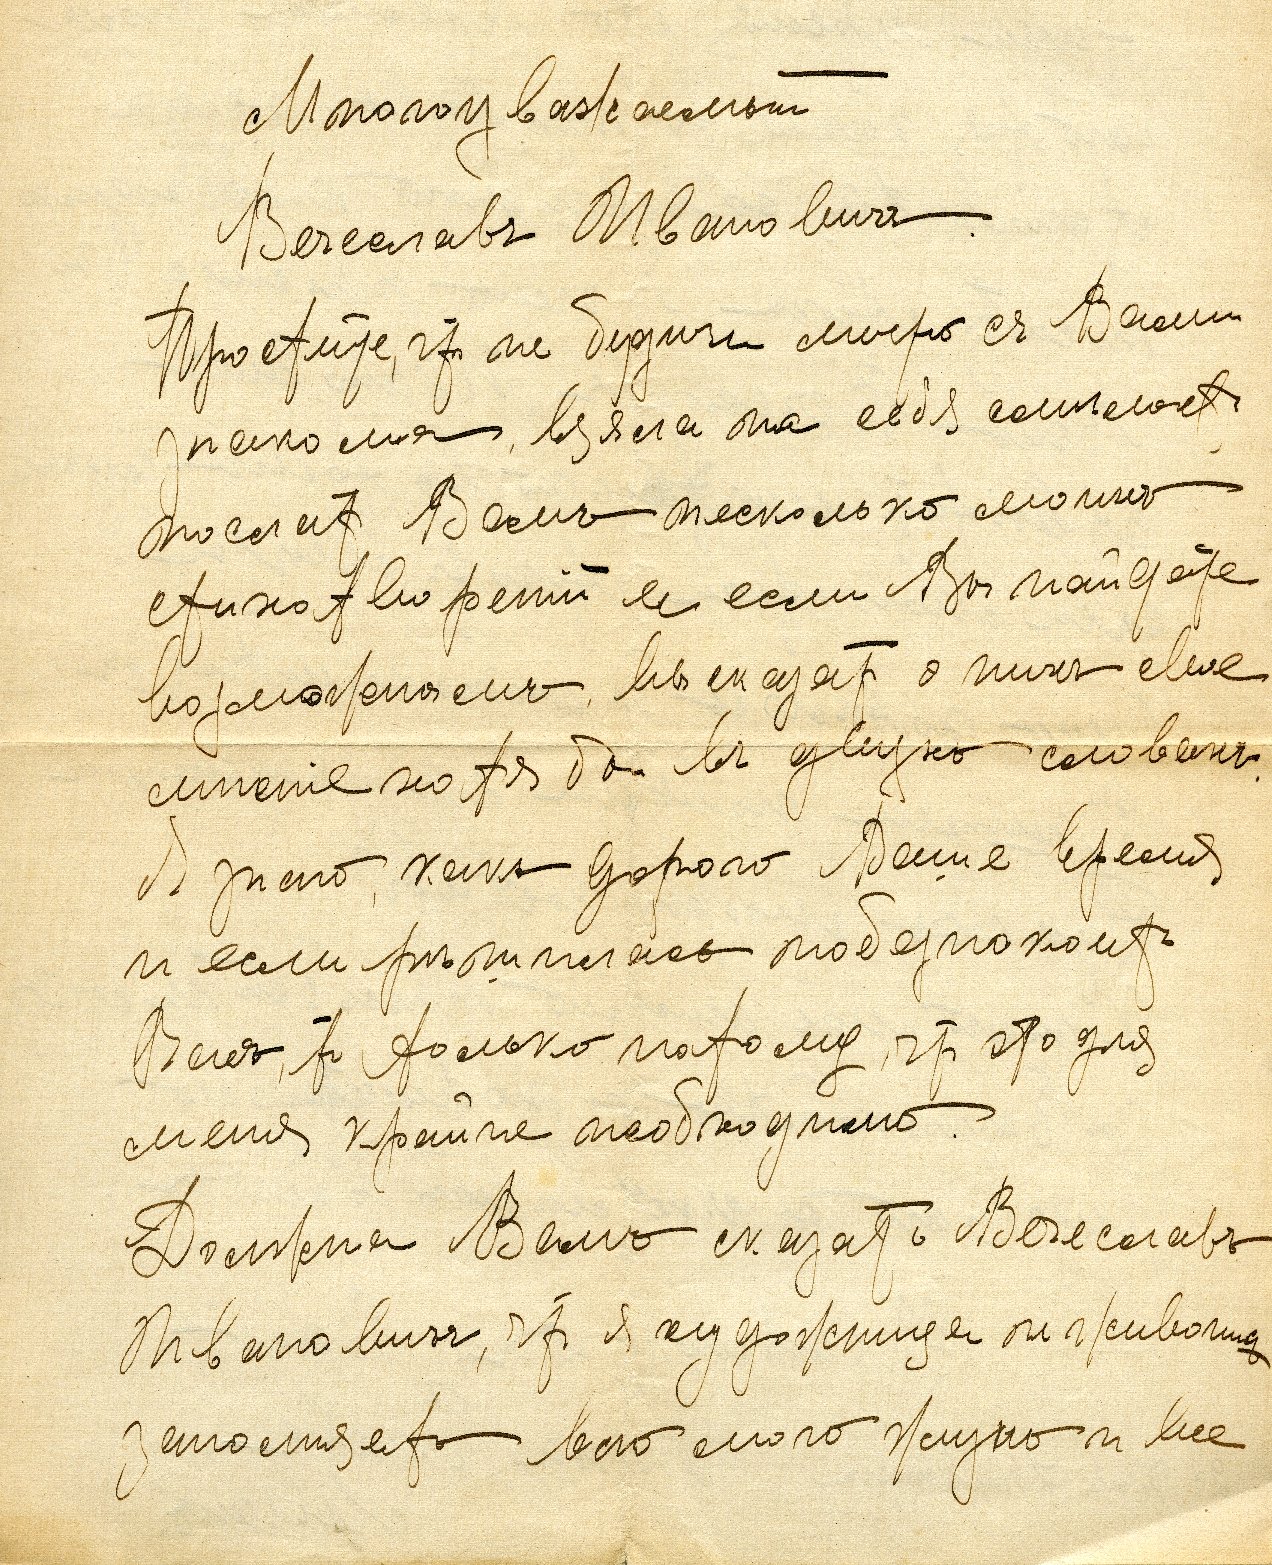 Многоуважаемый
Вечеславъ Ивановичъ.
Простите, что не будучи лично съ Вами
знакома, взяла на себя смелость
послать Вамъ несколько моихъ
стихотвореній и если Вы найдете
возможнымъ, высказать о нихъ свое
мненіе хотя бы въ двухъ словахъ.
Я знаю, какъ дорого Ваше время
и если рѣшилась побезпокоить
Васъ, то только потому, что это для
меня крайне необходимо.
Должна Вамъ сказать Вечеславъ
Ивановичъ, что я художница и живопись
заполняетъ всю мою жизнь и все